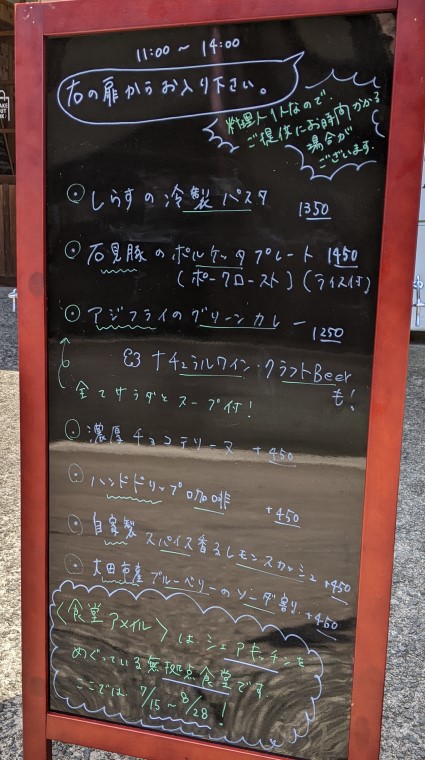 11:00 ~ 14:00
右の扉からお入り下さい。
料理人1人なので
ご提供にお時間かかる
場合が
ございます。
・しらすの冷製パスタ 1350
・石見豚のポルケッタプレート 1450
(ポークロースト)(ライス付)
・アジフライのグリーンカレー 1250
ナチュラルワイン・クラフトBeer
も!
全てサラダとスープ付!
・濃厚チョコテリーヌ +450
・ハンドドリップ珈琲 +450
・自家製スパイス香るレモンスカッシュ +450
・大田市産ブルーベリーのソーダ割り +450
〈食堂アメイル〉はシェアキッチンを
めぐっている無拠点食堂です
ここでは 7/15~8/28!